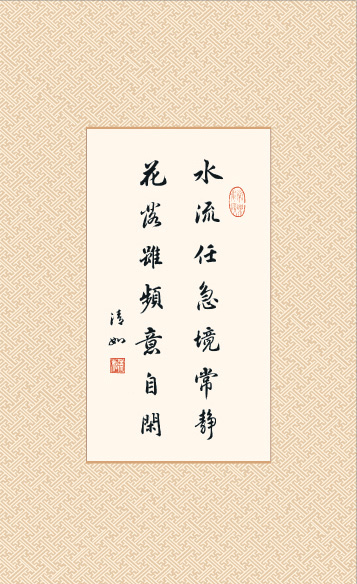 水流任急境常静
花落雖頻意自閑
清如